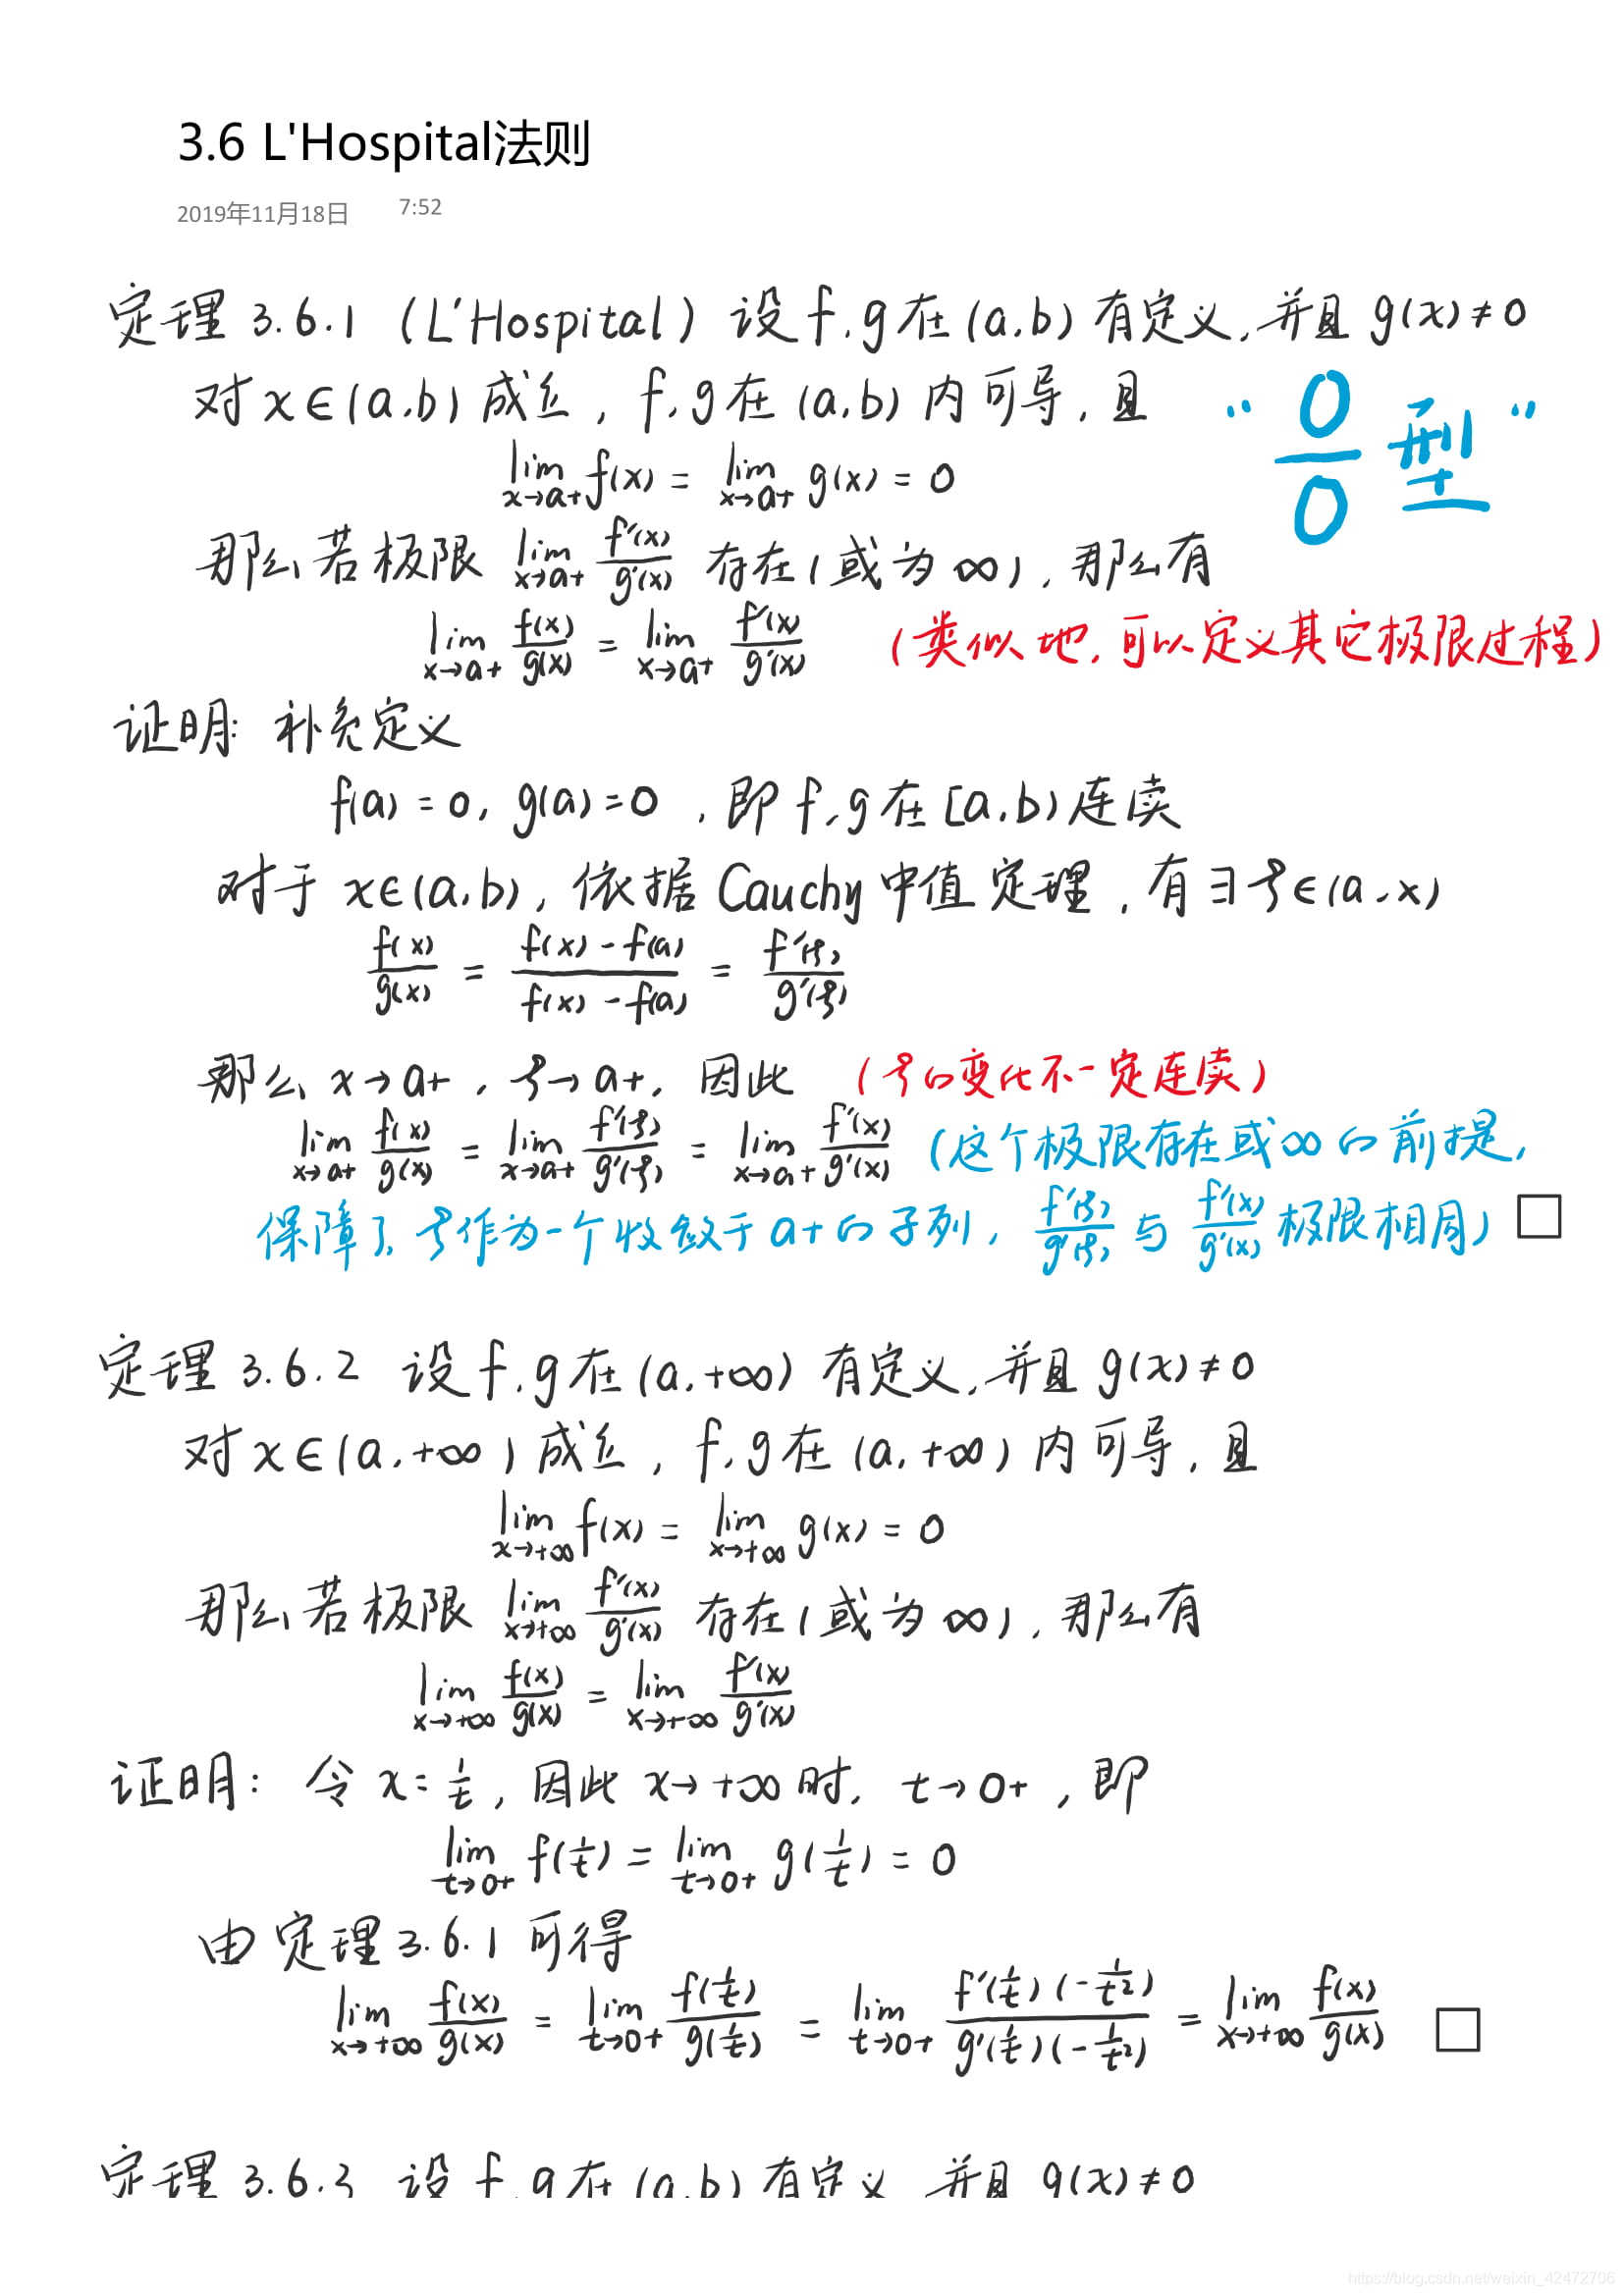 3.6 L'Hospital法则
2019年11月18日 7:52
定理 3.6.1 (L'Hospital) 设 f, g 在 (a, b) 有定义, 并且 g(x) ≠ 0
对 x∈(a, b) 成立, f, g 在 (a, b) 内可导, 且
lim_{x→a+} f(x) = lim_{x→a+} g(x) = 0
“0/0 型”
那么若极限 lim_{x→a+} f'(x)/g'(x) 存在(或为∞), 那么有
lim_{x→a+} f(x)/g(x) = lim_{x→a+} f'(x)/g'(x) (类似地, 可以定义其它极限过程)
证明: 补充定义
f(a) = 0, g(a) = 0, 即 f, g 在 [a, b) 连续
对于 x∈(a, b), 依据 Cauchy 中值定理, 有 ∃ξ∈(a, x)
f(x)/g(x) = (f(x) - f(a))/(f(x) - f(a)) = f'(ξ)/g'(ξ)
那么 x→a+, ξ→a+, 因此 (ξ的变化不一定连续)
lim_{x→a+} f(x)/g(x) = lim_{x→a+} f'(ξ)/g'(ξ) = lim_{x→a+} f'(x)/g'(x) (这个极限存在或∞的前提,
保障了ξ作为一个收敛于a+的子列, f'(ξ)/g'(ξ) 与 f'(x)/g'(x) 极限相同) □
定理 3.6.2 设 f, g 在 (a, +∞) 有定义, 并且 g(x) ≠ 0
对 x∈(a, +∞) 成立, f, g 在 (a, +∞) 内可导, 且
lim_{x→+∞} f(x) = lim_{x→+∞} g(x) = 0
那么若极限 lim_{x→+∞} f'(x)/g'(x) 存在(或为∞), 那么有
lim_{x→+∞} f(x)/g(x) = lim_{x→+∞} f'(x)/g'(x)
证明: 令 x = 1/t, 因此 x→+∞ 时, t→0+, 即
lim_{t→0+} f(1/t) = lim_{t→0+} g(1/t) = 0
由定理 3.6.1 可得
lim_{x→+∞} f(x)/g(x) = lim_{t→0+} f(1/t)/g(1/t) = lim_{t→0+} f'(1/t)(-1/t²)/g'(1/t)(-1/t²) = lim_{x→+∞} f(x)/g(x) □
定理 3.6.3 设 f, g 在 (a, b) 有定义 并且 g(x) ≠ 0
https://blog.csdn.net/weixin_42472706